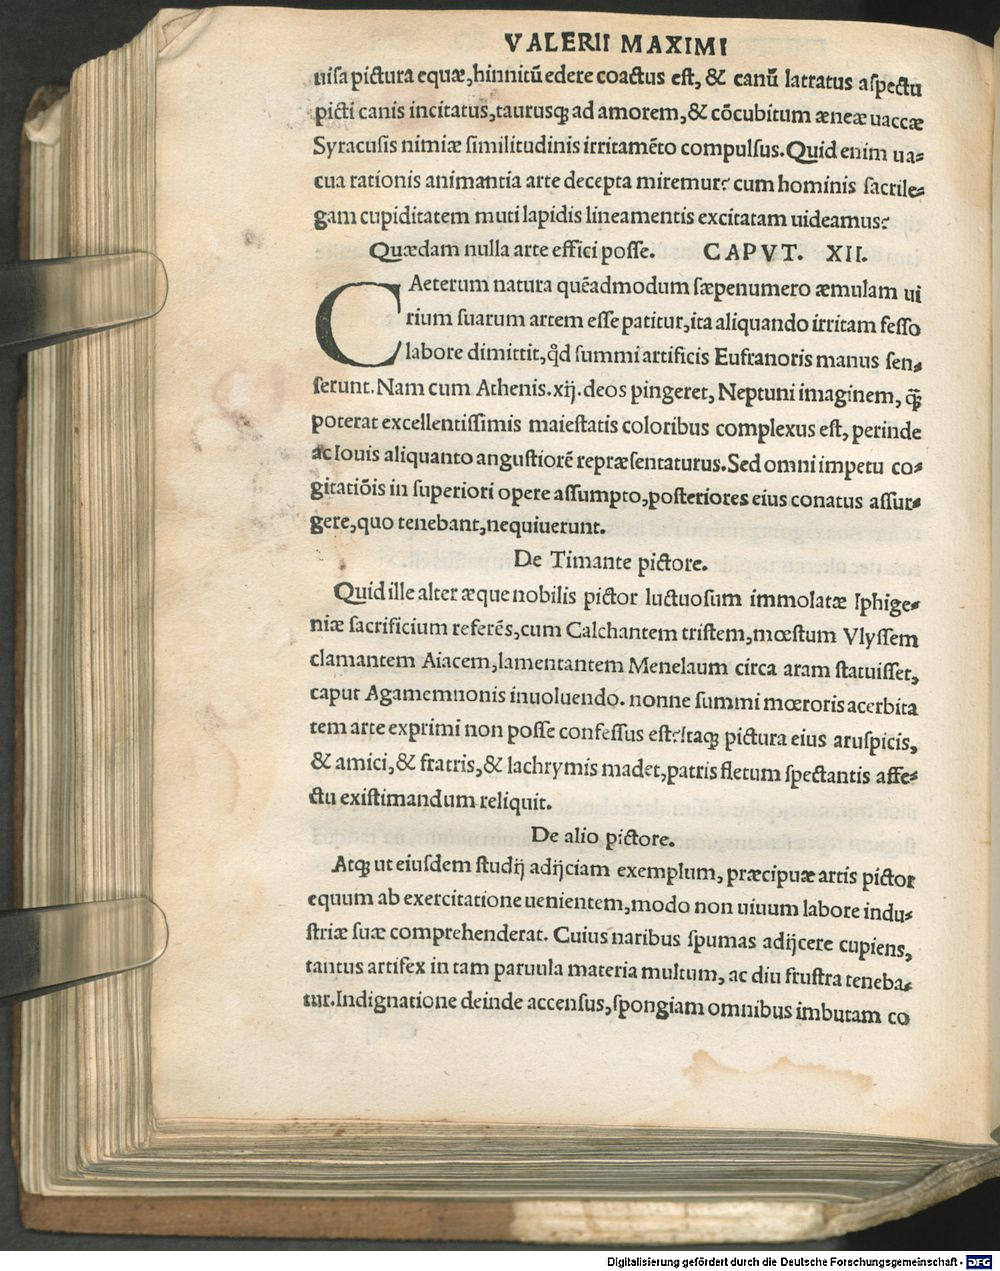 VALERII MAXIMI
uisa pictura equæ, hinnitũ edere coactus est, & canũ latratus aspectu
picti canis incitatus, taurusq; ad amorem, & cõcubitum æneæ uaccæ
Syracusis nimiæ similitudinis irritamẽto compulsus. Quid enim ua-
cua rationis animantia arte decepta miremur? cum hominis sacrile-
gam cupiditatem muti lapidis lineamentis excitatam uideamus?
Quædam nulla arte effici posse. CAPVT. XII.
CAeterum natura quẽadmodum sæpenumero æmulam ui
rium suarum artem esse patitur, ita aliquando irritam fesso
labore dimittit, qd̓ summi artificis Eufranoris manus sen-
serunt. Nam cum Athenis .xij. deos pingeret, Neptuni imaginem, q̃
poterat excellentissimis maiestatis coloribus complexus est, perinde
ac Iouis aliquanto angustiorẽ repræsentaturus. Sed omni impetu co-
gitatiõis in superiori opere assumpto, posteriores eius conatus assur-
gere, quo tenebant, nequiuerunt.
De Timante pictore.
Quid ille alter æque nobilis pictor luctuosum immolatæ Iphige-
niæ sacrificium referẽs, cum Calchantem tristem, mœstum Vlyssem
clamantem Aiacem, lamentantem Menelaum circa aram statuisset,
caput Agamemnonis inuoluendo. nonne summi mœroris acerbita
tem arte exprimi non posse confessus est? Itaq; pictura eius aruspicis,
& amici, & fratris, & lachrymis madet, patris fletum spectantis affe-
ctu existimandum reliquit.
De alio pictore.
Atq; ut eiusdem studij adijciam exemplum, præcipuæ artis pictor
equum ab exercitatione uenientem, modo non uiuum labore indu-
striæ suæ comprehenderat. Cuius naribus spumas adijcere cupiens,
tantus artifex in tam paruula materia multum, ac diu frustra teneba-
tur. Indignatione deinde accensus, spongiam omnibus imbutam co
Digitalisierung gefördert durch die Deutsche Forschungsgemeinschaft - DFG